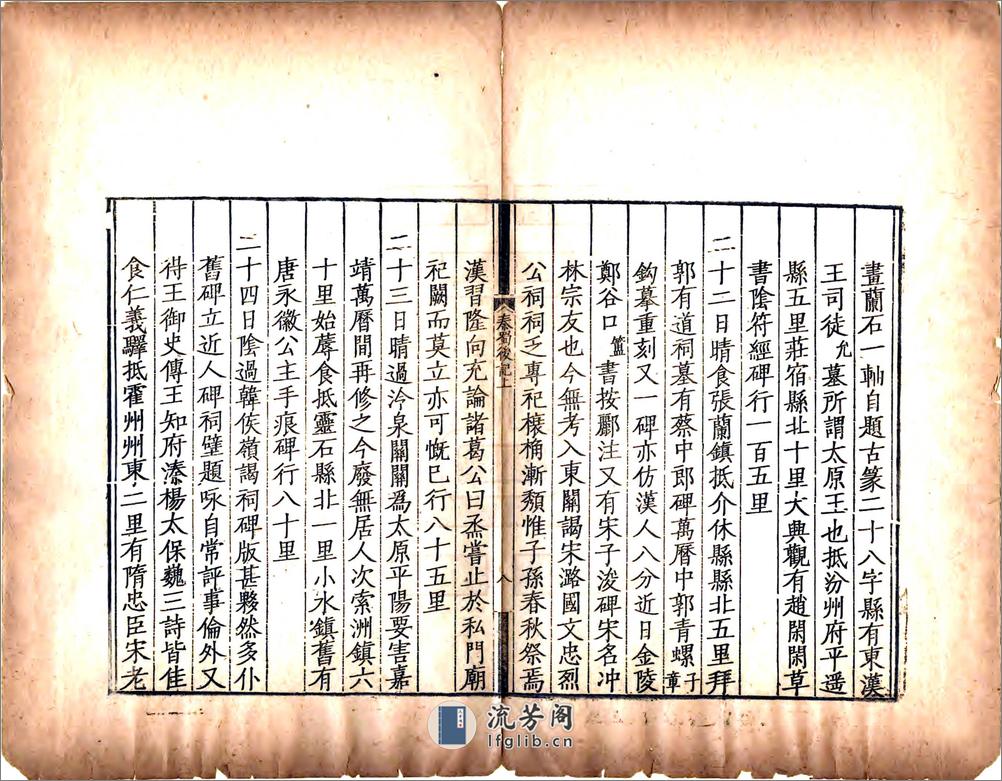 畫蘭石一軸自題古篆二十八字縣有東漢
王司徒允墓所謂太原王也抵汾州府平遥
縣五里莊宿縣北十里大典觀有趙閑閑草
書陰符經碑行一百五里
二十二日晴食張蘭鎮抵介休縣縣北五里拜
郭有道祠墓有蔡中郎碑萬曆中郭青螺子章
鈎摹重刻又一碑亦仿漢人八分近日金陵
鄭谷口簠書按酈注又有宋子浚碑宋名冲
林宗友也今無考入東關謁宋潞國文忠烈
公祠祠乏專祀榱桷漸頹惟子孫春秋祭焉
秦蜀後記上
八
漢習隆向充論諸葛公曰烝嘗止於私門廟
祀闕而莫立亦可慨已行八十五里
二十三日晴過冷泉關關為太原平陽要害嘉
靖萬曆間再修之今廢無居人次索洲鎮六
十里始蓐食抵靈石縣北一里小水鎮舊有
唐永徽公主手痕碑行八十里
二十四日陰過韓侯嶺謁祠碑版甚夥然多仆
舊碑立近人碑祠壁題咏自常評事倫外又
得王御史傳王知府溱楊太保巍三詩皆佳
食仁義驛抵霍州州東二里有隋忠臣宋老
流芳阁
lfglib.cn